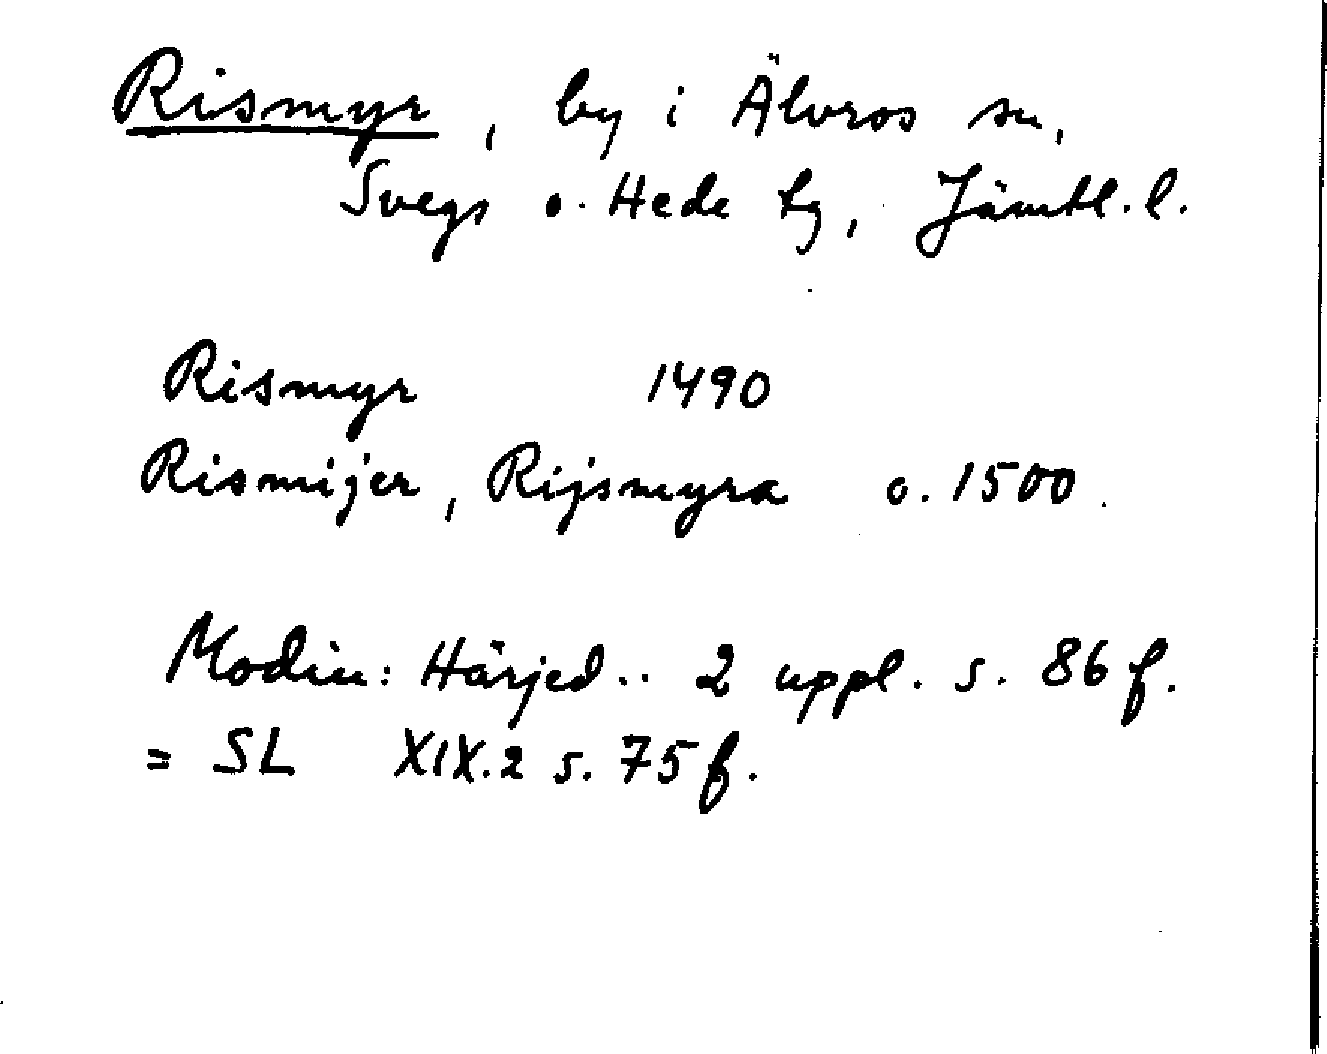 Rismyr, by i Älvros sn,
Svegs o. Hede tg, Jämtl. l.
Rismyr 1490
Rismijer, Rijsmyra o. 1500.
Modin: Härjed.. 2 uppl. s. 86 f.
= SL XIX.2 s. 75 f.